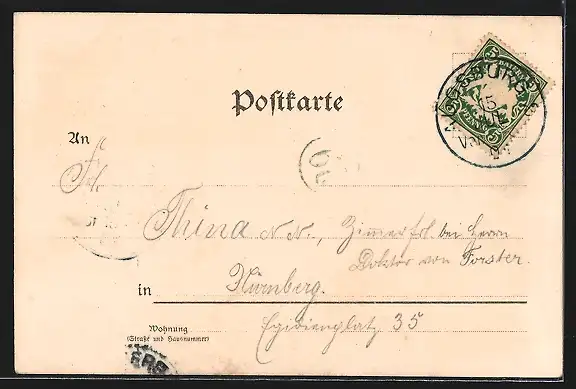 Postkarte
BAYERN
5
PFENNIG
15
An
Frl.
Thina N. N., Zimmerfrl. bei Herrn
Doktor von Forster.
in
Nürnberg.
Wohnung
(Straße und Hausnummer)
Egidienplatz 35